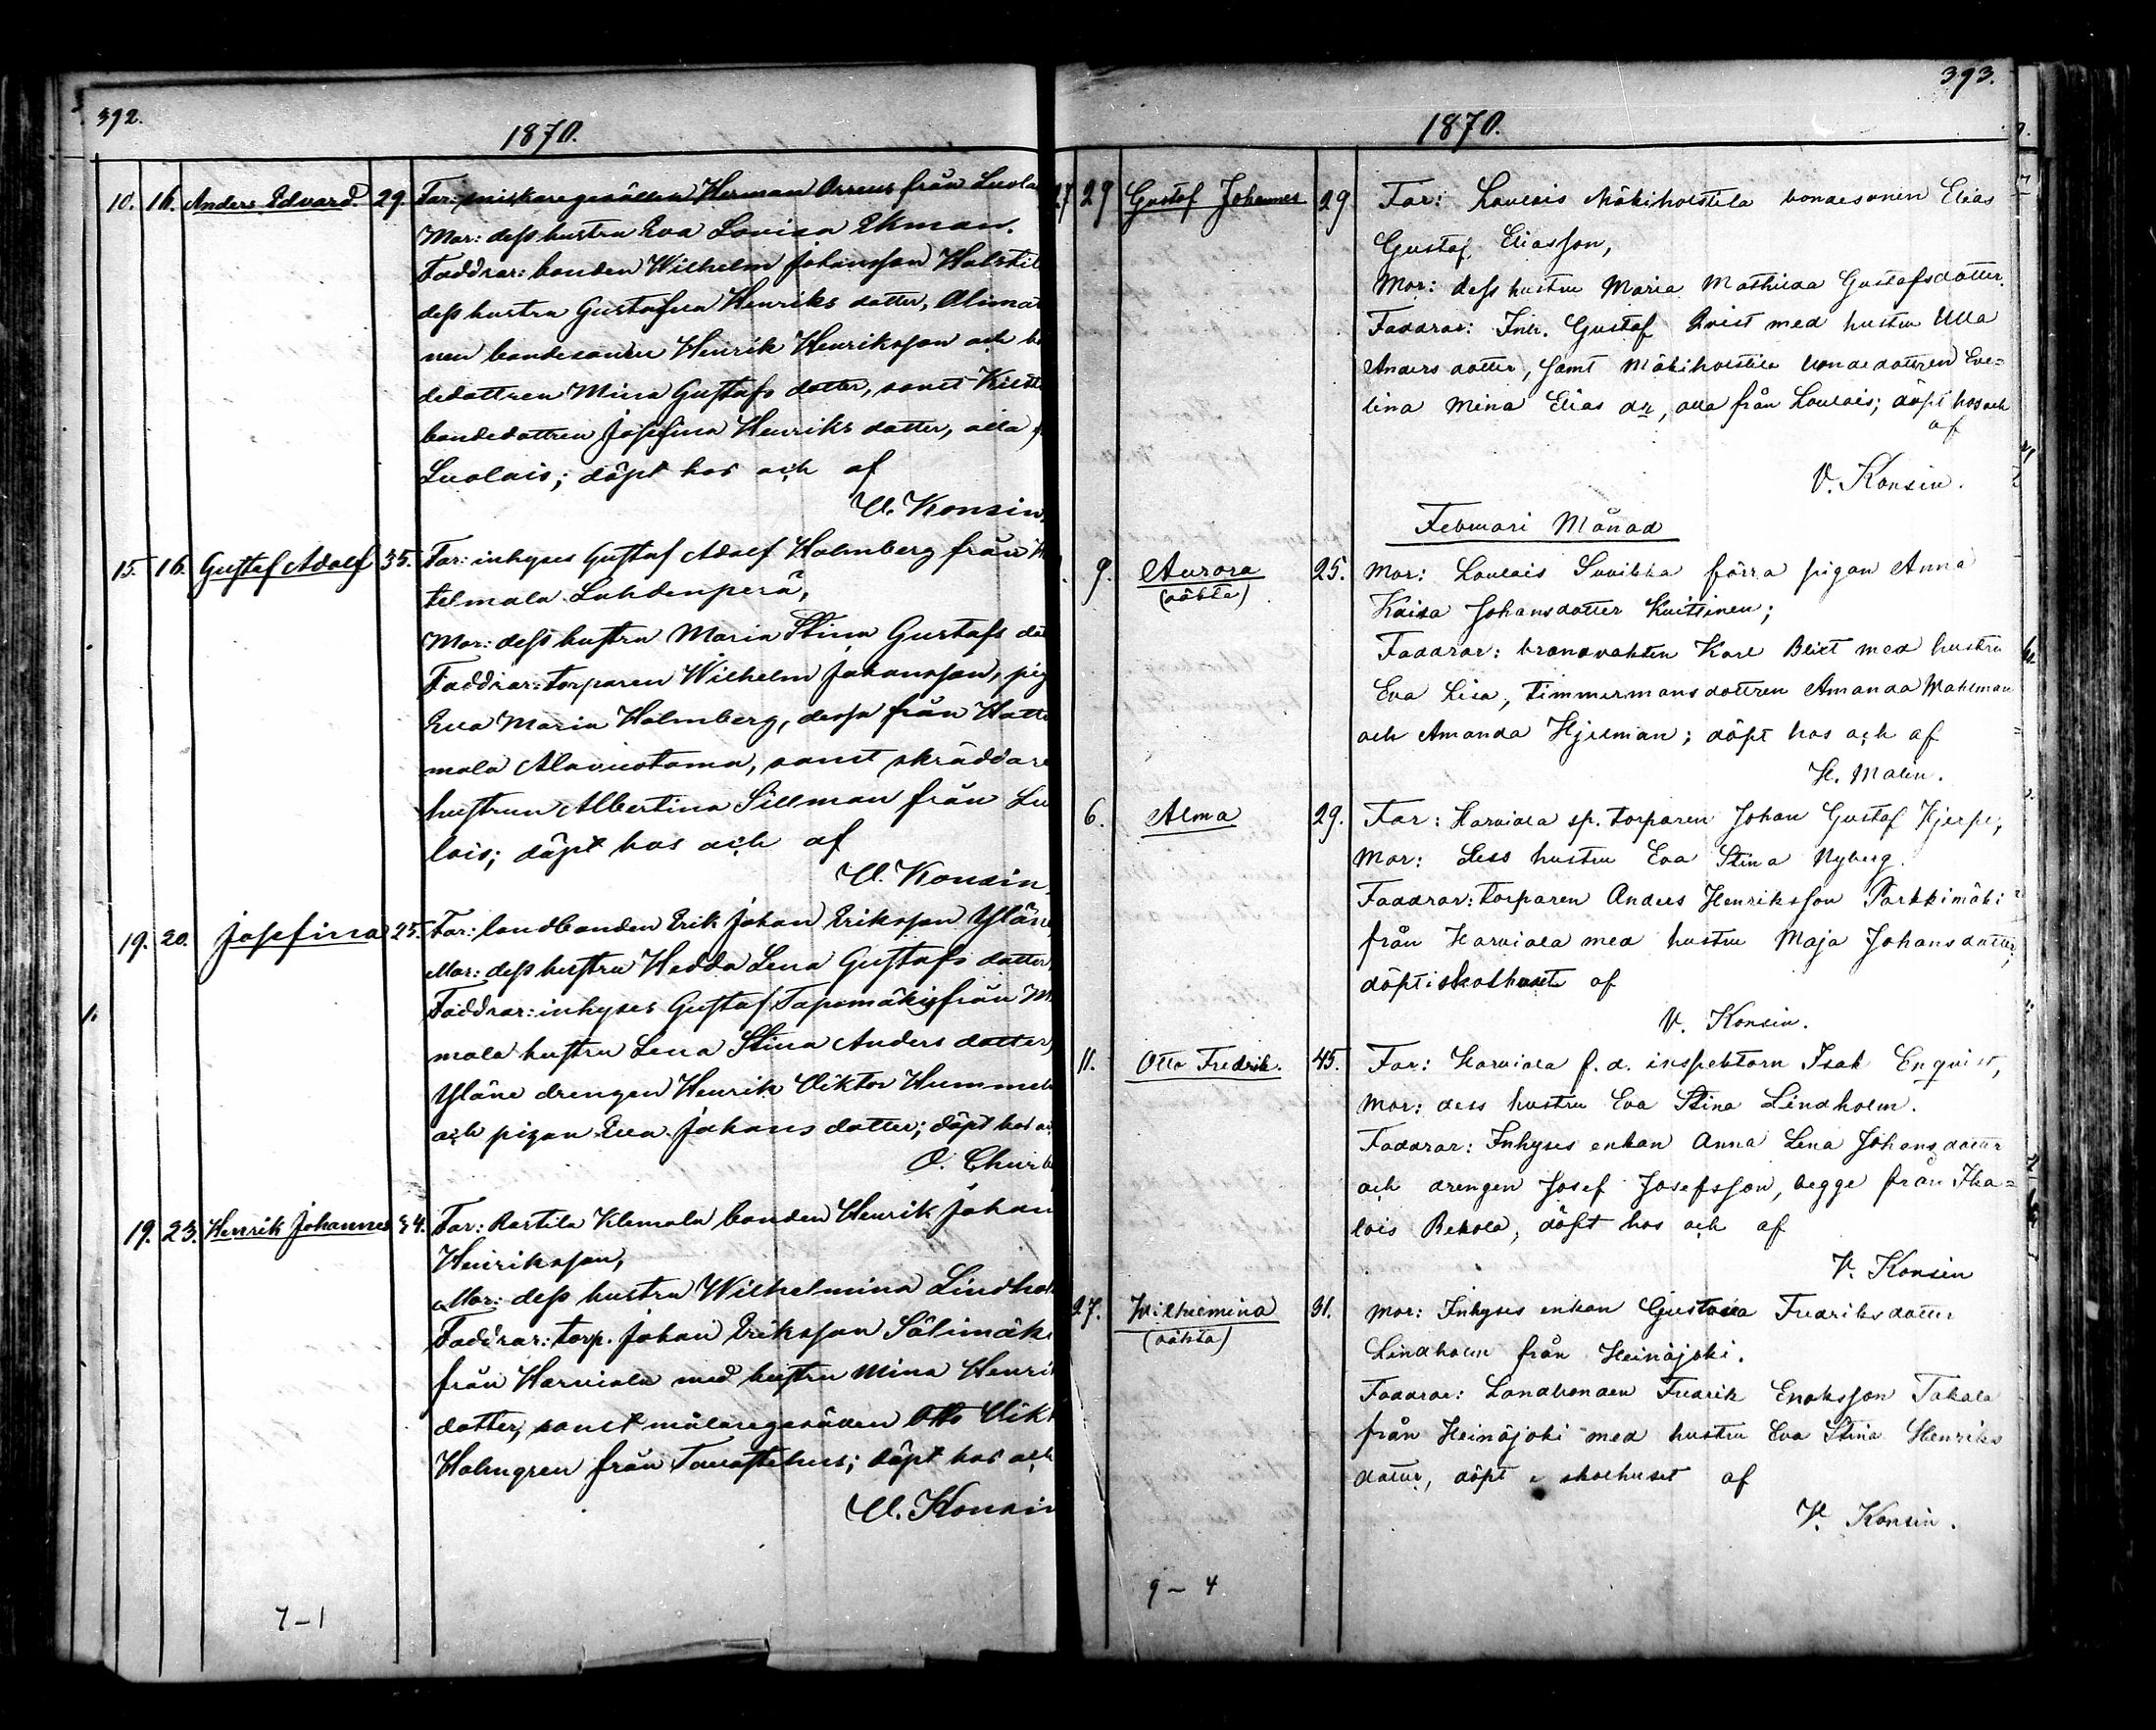 392.
1870.
10. 16. Anders Edvard. 29. Far: Herman Orreus från Luola
Mor: dess hustru Eva Lovisa Ekman.
Faddrar: bonden Wilhelm Johansson
dess hustru Gustafva Henriks dotter,
nen bondesonen Henrik Henriksson och bo
dedottren Mina Gustafs dotter, samt
bondedottren Josefina Henriks dotter, alla
Luolais; döpt hos och af
V. Konsin.
15. 16. Gustaf Adolf 35. Far: inhyses Gustaf Adolf Holmberg från
telmala Lahdenperä,
Mor: dess hustru Maria Stina Gustafs dot
Faddrar: torparen Wilhelm Johansson, pig
Eva Maria Holmberg, dessa från Hatte
mala samt skräddare
hustrun Albertina Sillman från Lu
lois; döpt hos och af
V. Konsin.
19. 20. Josefina 25. Far: landbonden Erik Johan Eriksson Yläne
Mor: dess hustru Hedda Lena Gustafs dotter,
Faddrar: inhyses Gustaf från
mala hustru Lena Stina Anders dotter,
Yläne drengen Henrik Viktor
och pigan Eva Johans dotter; döpt hos
O.
19. 23. Henrik Johannes 34. Far: Rastila Klemola bonden Henrik Johan
Henriksson,
Mor: dess hustru Wilhelmina Lindho
Faddrar: torp. Johan Eriksson Sälimäki
från Harviala med hustru Mina Henri
dotter, samt målaregesällen Otto Vikt
Holmgren från Tavastehus; döpt hos och
V. Konsin
7-1
393.
1870.
27 29 Gustaf Johannes 29 Far: Loulais Mäkiholstila bondesonen Elias
Gustaf Eliasson,
Mor: dess hustru Maria Mathilda Gustafsdotter.
Faddrar: Inh. Gustaf Qvist med hustru Ulla
Anders dotter, samt Mäkiholstila bondedottren Eve=
lina Mina Elias dr, alla från Loulais; döpt hos och
af
V. Konsin.
Februari Månad
9. Aurora 25. Mor: Loulais Suvikka förra pigan Anna
(oäkta)
Kaisa Johansdotter Kuittinen;
Faddrar: brandvakten Karl Blixt med hustru
Eva Lisa, timmermansdottren Amanda Wahlman
och Amanda Hjelman; döpt hos och af
H. Malin.
6. Alma 29. Far: Harviala sp. torparen Johan Gustaf Hjerpe,
Mor: dess hustru Eva Stina Nyberg.
Faddrar: torparen Anders Henriksson Parkkimäki
från Harviala med hustru Maja Johansdotter;
döpt i skolhuset af
V. Konsin.
11. Otto Fredrik. 45. Far: Harviala f.d. inspektorn Isak Enqvist,
Mor: dess hustru Eva Stina Lindholm.
Faddrar: Inhyses enkan Anna Lena Johansdotter
och drengen Josef Josefsson, begge från Iha=
lois Rekola, döpt hos och af
V. Konsin
27. Wilhelmina 31. Mor: Inhyses enkan Gustava Fredriksdotter
(oäkta)
Lindholm från Heinäjoki.
Faddrar: Landbonden Fredrik Enoksson Takala
från Heinäjoki med hustru Eva Stina Henriks
dotter, döpt i skolhuset af
V. Konsin.
9-4